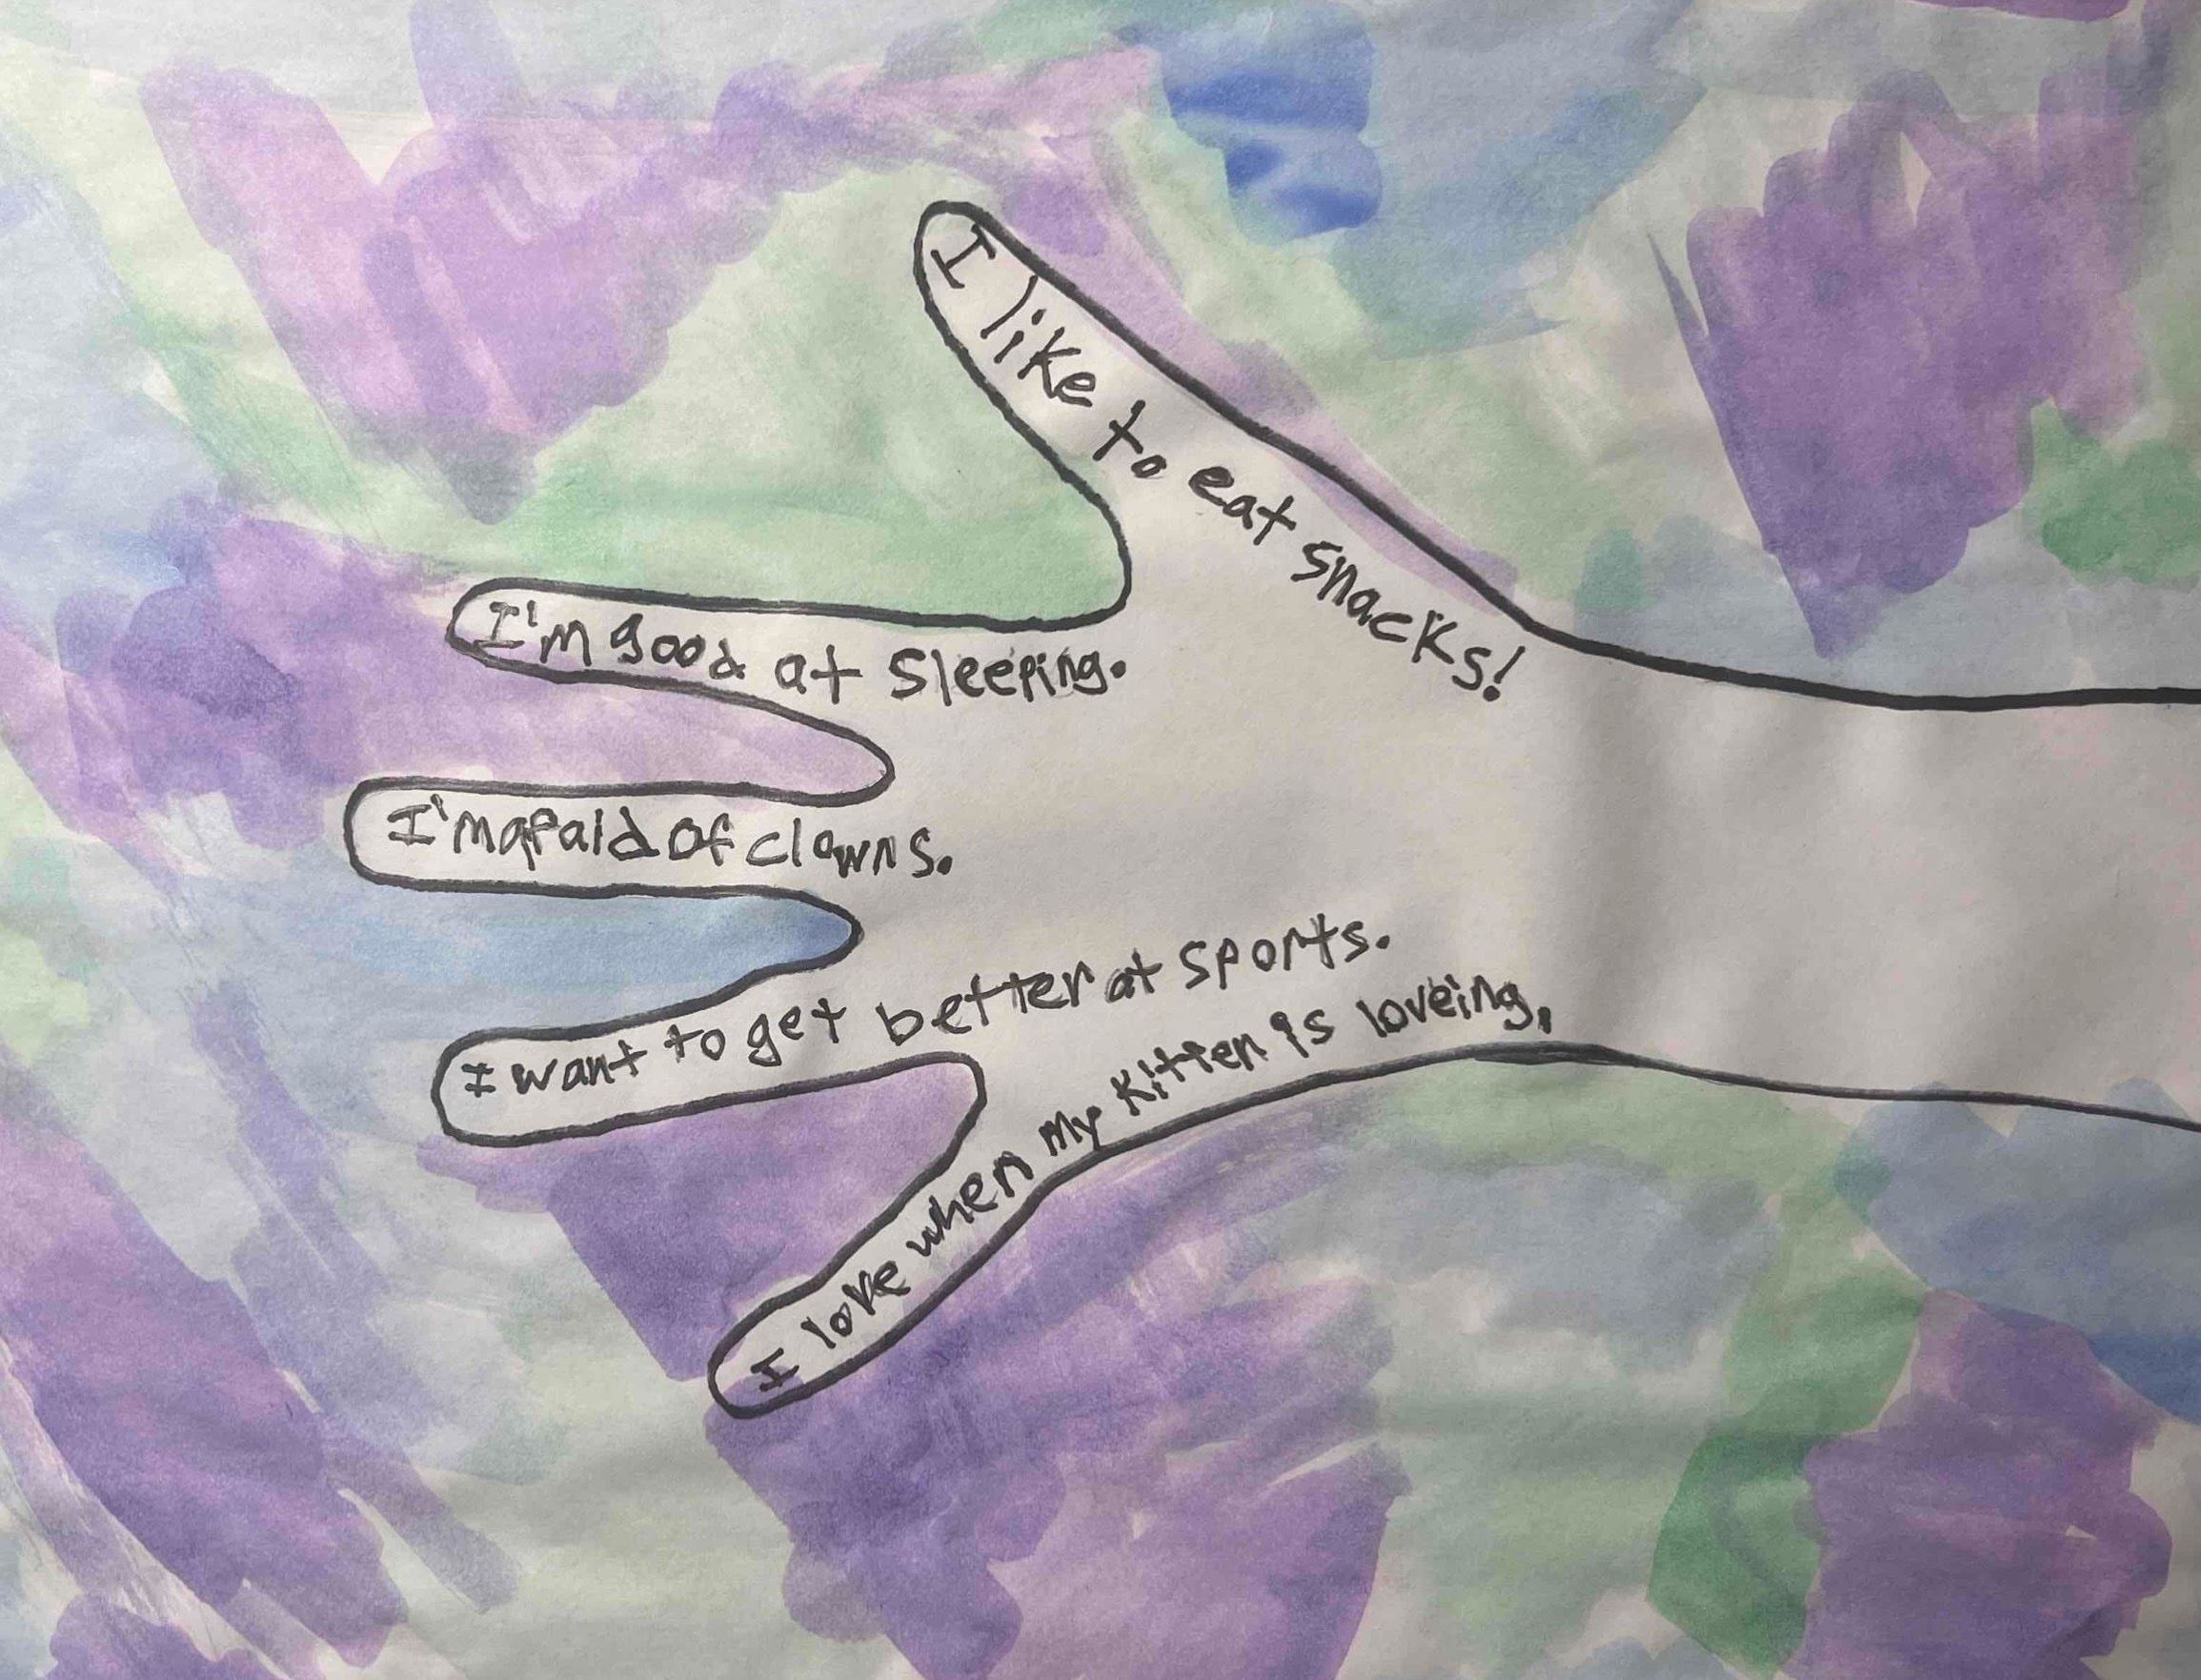 I like to eat snacks!
I'm good at sleeping.
I'm afald of clowns.
I want to get better at sports.
I love when my kitten is loveing.